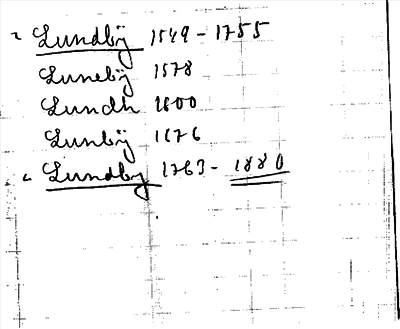 Lundbÿ 1549 - 1755
Lunebÿ 1578
Lundh 1600
Lunbÿ 1676
Lundby 1763 - 1880